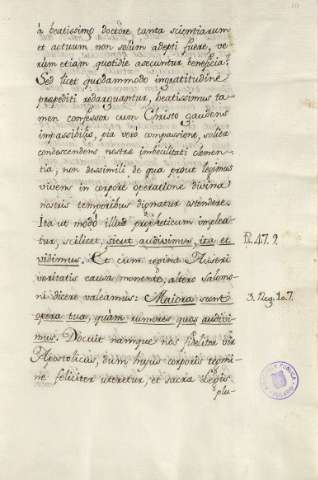 à beatissimo doctore tanta scientiarum
et actuum non solùm adepti fuere, ve
rùm etiam quotidie assecuntur beneficia.
Sed licet quodammodo ingratitudine
præpediti redarguantur, beatissimus ta
men confessor cum Christo gaudens
impassibilis, pia verò compassione, solita
condescendens nostræ imbecillitati clemen
tia, non dissimili de qua prout legimus
vivens in corpore operatione divina
nostris temporibus dignatur ostendere.
Ita ut modò illud propheticum implea
tur, scilicet, sicut audivimus, ita et
vidimus. Et cum regina Austri
veritatis causa monendo, altero Salomo
ni dicere valeamus: Maiora sunt
opera tua, quàm rumores quos audivi
mus. Docuit namque nos fideliter vir
Apostolicus, dum hujus corporis tegmi
ne feliciter uteretur, et sacra
plu-
Ps. 47. 9.
3. Reg. 10. 7.